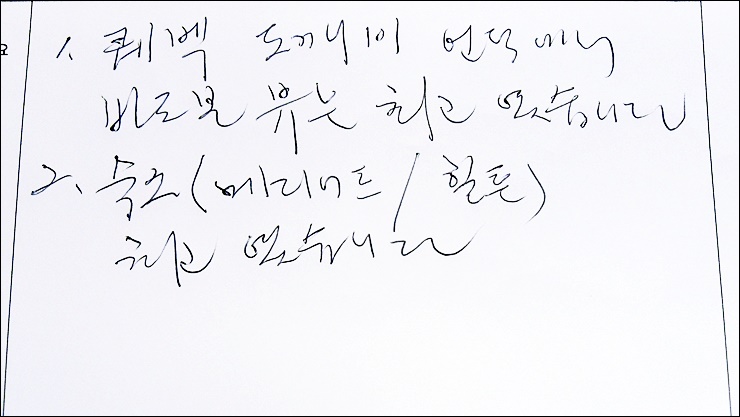 1. 퀘벡 도깨비 언덕에서
바라본 뷰는 최고 였습니다
2. 숙소(메리어트/힐튼)
최고 였습니다